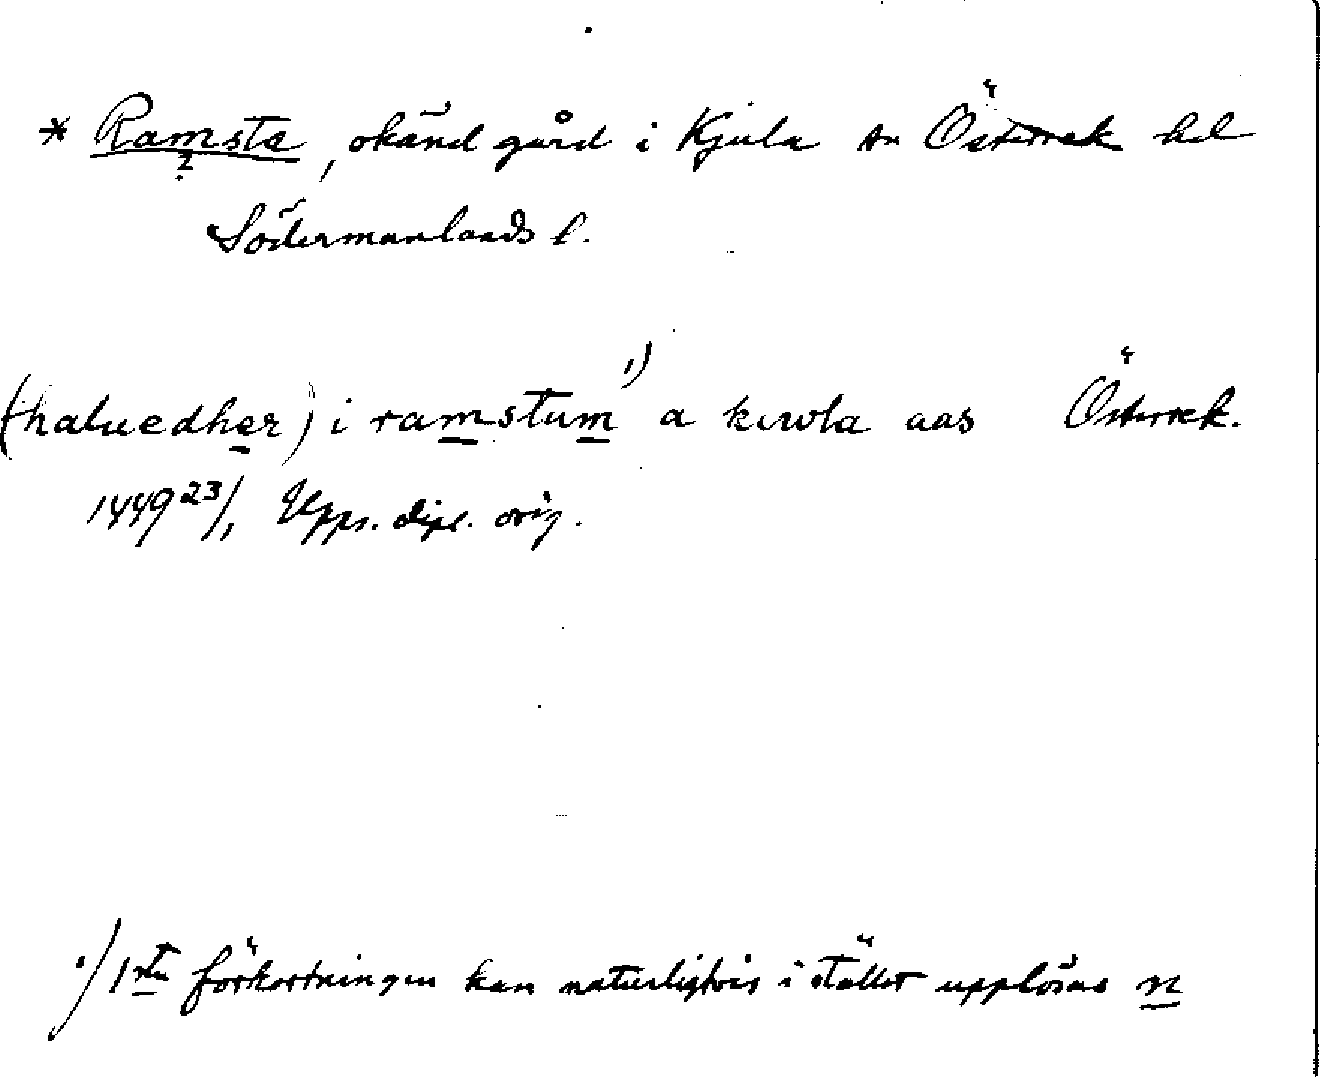 * Ramsta, okänd gård i Kjula sn Österrek hd
?
Södermanlands l.
(haluedher) i ramstum 1) a kiwla aas Österrek.
1449 23/1 Upps. dipl. orig.
1) 1sta förkortningen kan naturligtvis i stället upplösas n